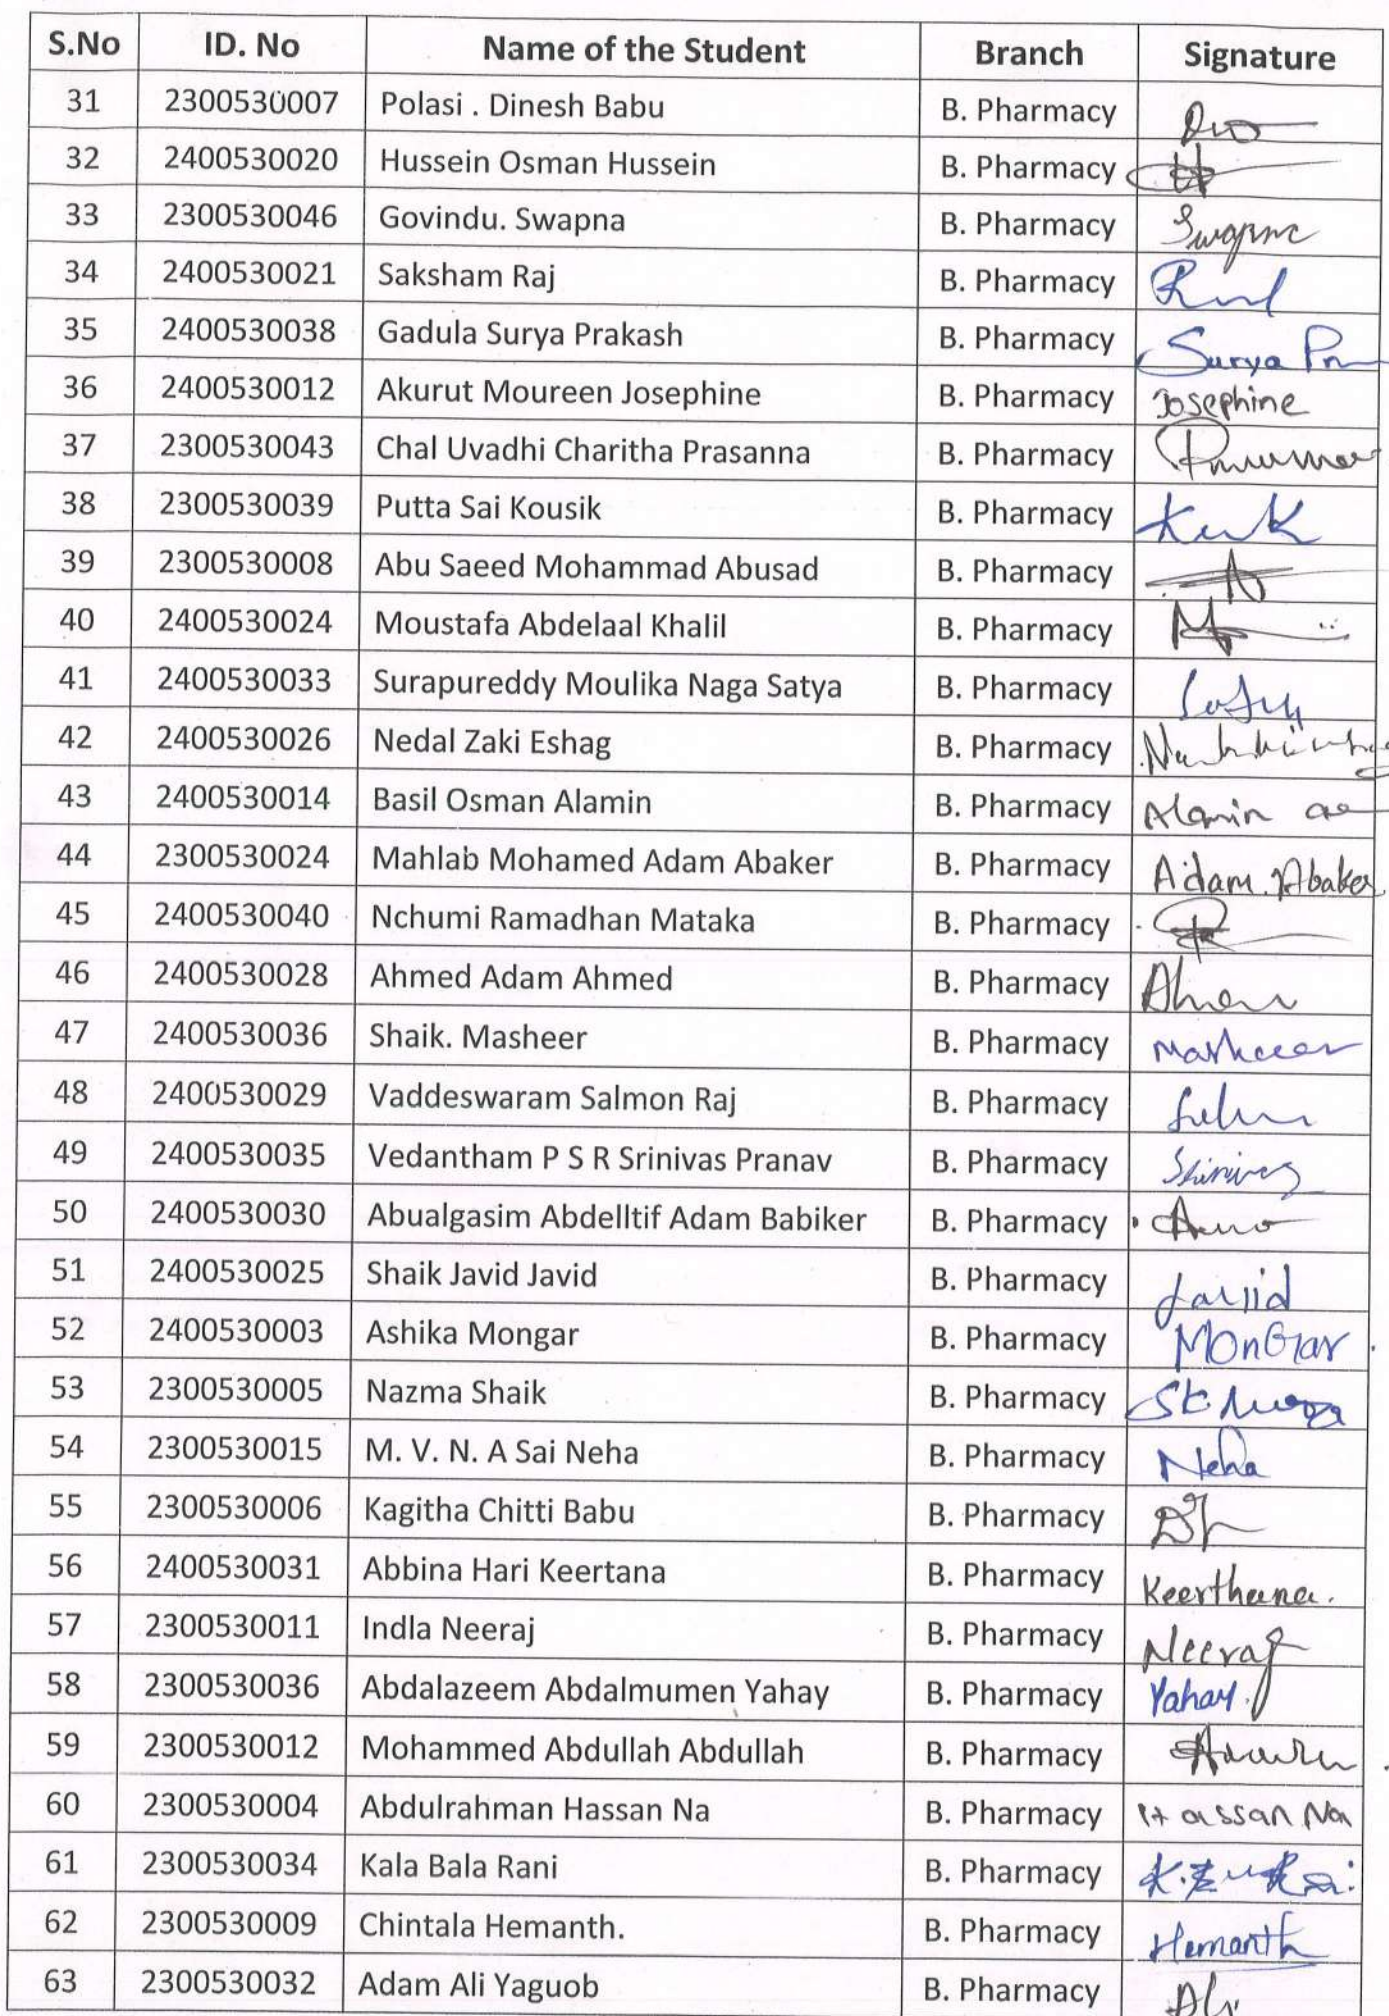 S.No ID. No Name of the Student Branch Signature
31 2300530007 Polasi . Dinesh Babu B. Pharmacy
32 2400530020 Hussein Osman Hussein B. Pharmacy
33 2300530046 Govindu. Swapna B. Pharmacy Swapna
34 2400530021 Saksham Raj B. Pharmacy
35 2400530038 Gadula Surya Prakash B. Pharmacy Surya
36 2400530012 Akurut Moureen Josephine B. Pharmacy Josephine
37 2300530043 Chal Uvadhi Charitha Prasanna B. Pharmacy
38 2300530039 Putta Sai Kousik B. Pharmacy
39 2300530008 Abu Saeed Mohammad Abusad B. Pharmacy
40 2400530024 Moustafa Abdelaal Khalil B. Pharmacy
41 2400530033 Surapureddy Moulika Naga Satya B. Pharmacy
42 2400530026 Nedal Zaki Eshag B. Pharmacy
43 2400530014 Basil Osman Alamin B. Pharmacy Alamin
44 2300530024 Mahlab Mohamed Adam Abaker B. Pharmacy Adam. Abaker
45 2400530040 Nchumi Ramadhan Mataka B. Pharmacy
46 2400530028 Ahmed Adam Ahmed B. Pharmacy
47 2400530036 Shaik. Masheer B. Pharmacy Masheer
48 2400530029 Vaddeswaram Salmon Raj B. Pharmacy
49 2400530035 Vedantham P S R Srinivas Pranav B. Pharmacy Srinivas
50 2400530030 Abualgasim Abdelltif Adam Babiker B. Pharmacy
51 2400530025 Shaik Javid Javid B. Pharmacy Javid
52 2400530003 Ashika Mongar B. Pharmacy MonGar
53 2300530005 Nazma Shaik B. Pharmacy
54 2300530015 M. V. N. A Sai Neha B. Pharmacy Neha
55 2300530006 Kagitha Chitti Babu B. Pharmacy
56 2400530031 Abbina Hari Keertana B. Pharmacy Keerthana.
57 2300530011 Indla Neeraj B. Pharmacy Neeraj
58 2300530036 Abdalazeem Abdalmumen Yahay B. Pharmacy Yahay.
59 2300530012 Mohammed Abdullah Abdullah B. Pharmacy
60 2300530004 Abdulrahman Hassan Na B. Pharmacy Hassan Na
61 2300530034 Kala Bala Rani B. Pharmacy
62 2300530009 Chintala Hemanth. B. Pharmacy Hemanth
63 2300530032 Adam Ali Yaguob B. Pharmacy